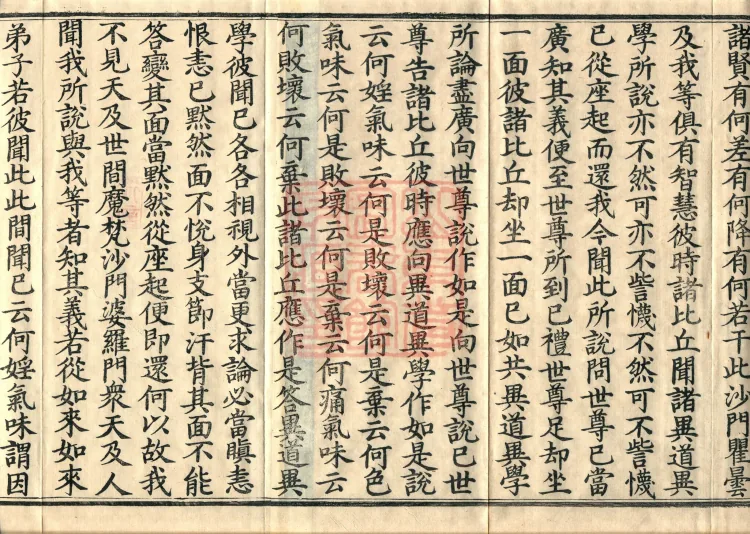 諸賢有何差有何降有何若干此沙門瞿曇
及我等俱有智慧彼時諸比丘聞諸異道異
學所說亦不然可亦不訾懱不然可不訾懱
已從座起而還我今聞此所說問世尊已當
廣知其義便至世尊所到已禮世尊足却坐
一面彼諸比丘却坐一面已如共異道異學
所論盡廣向世尊說作如是向世尊說已世
尊告諸比丘彼時應向異道異學作如是說
云何婬氣味云何是敗壞云何是棄云何色
氣味云何是敗壞云何是棄云何痛氣味云
何敗壞云何棄此諸比丘應作是答異道異
學彼聞已各各相視外當更求論必當瞋恚
恨恚已默然面不悅身支節汗背其面不能
答變其面當默然從座起便即還何以故我
不見天及世間魔梵沙門婆羅門衆天及人
聞我所說與我等者知其義若從如來如來
弟子若彼聞此此間聞已云何婬氣味謂因